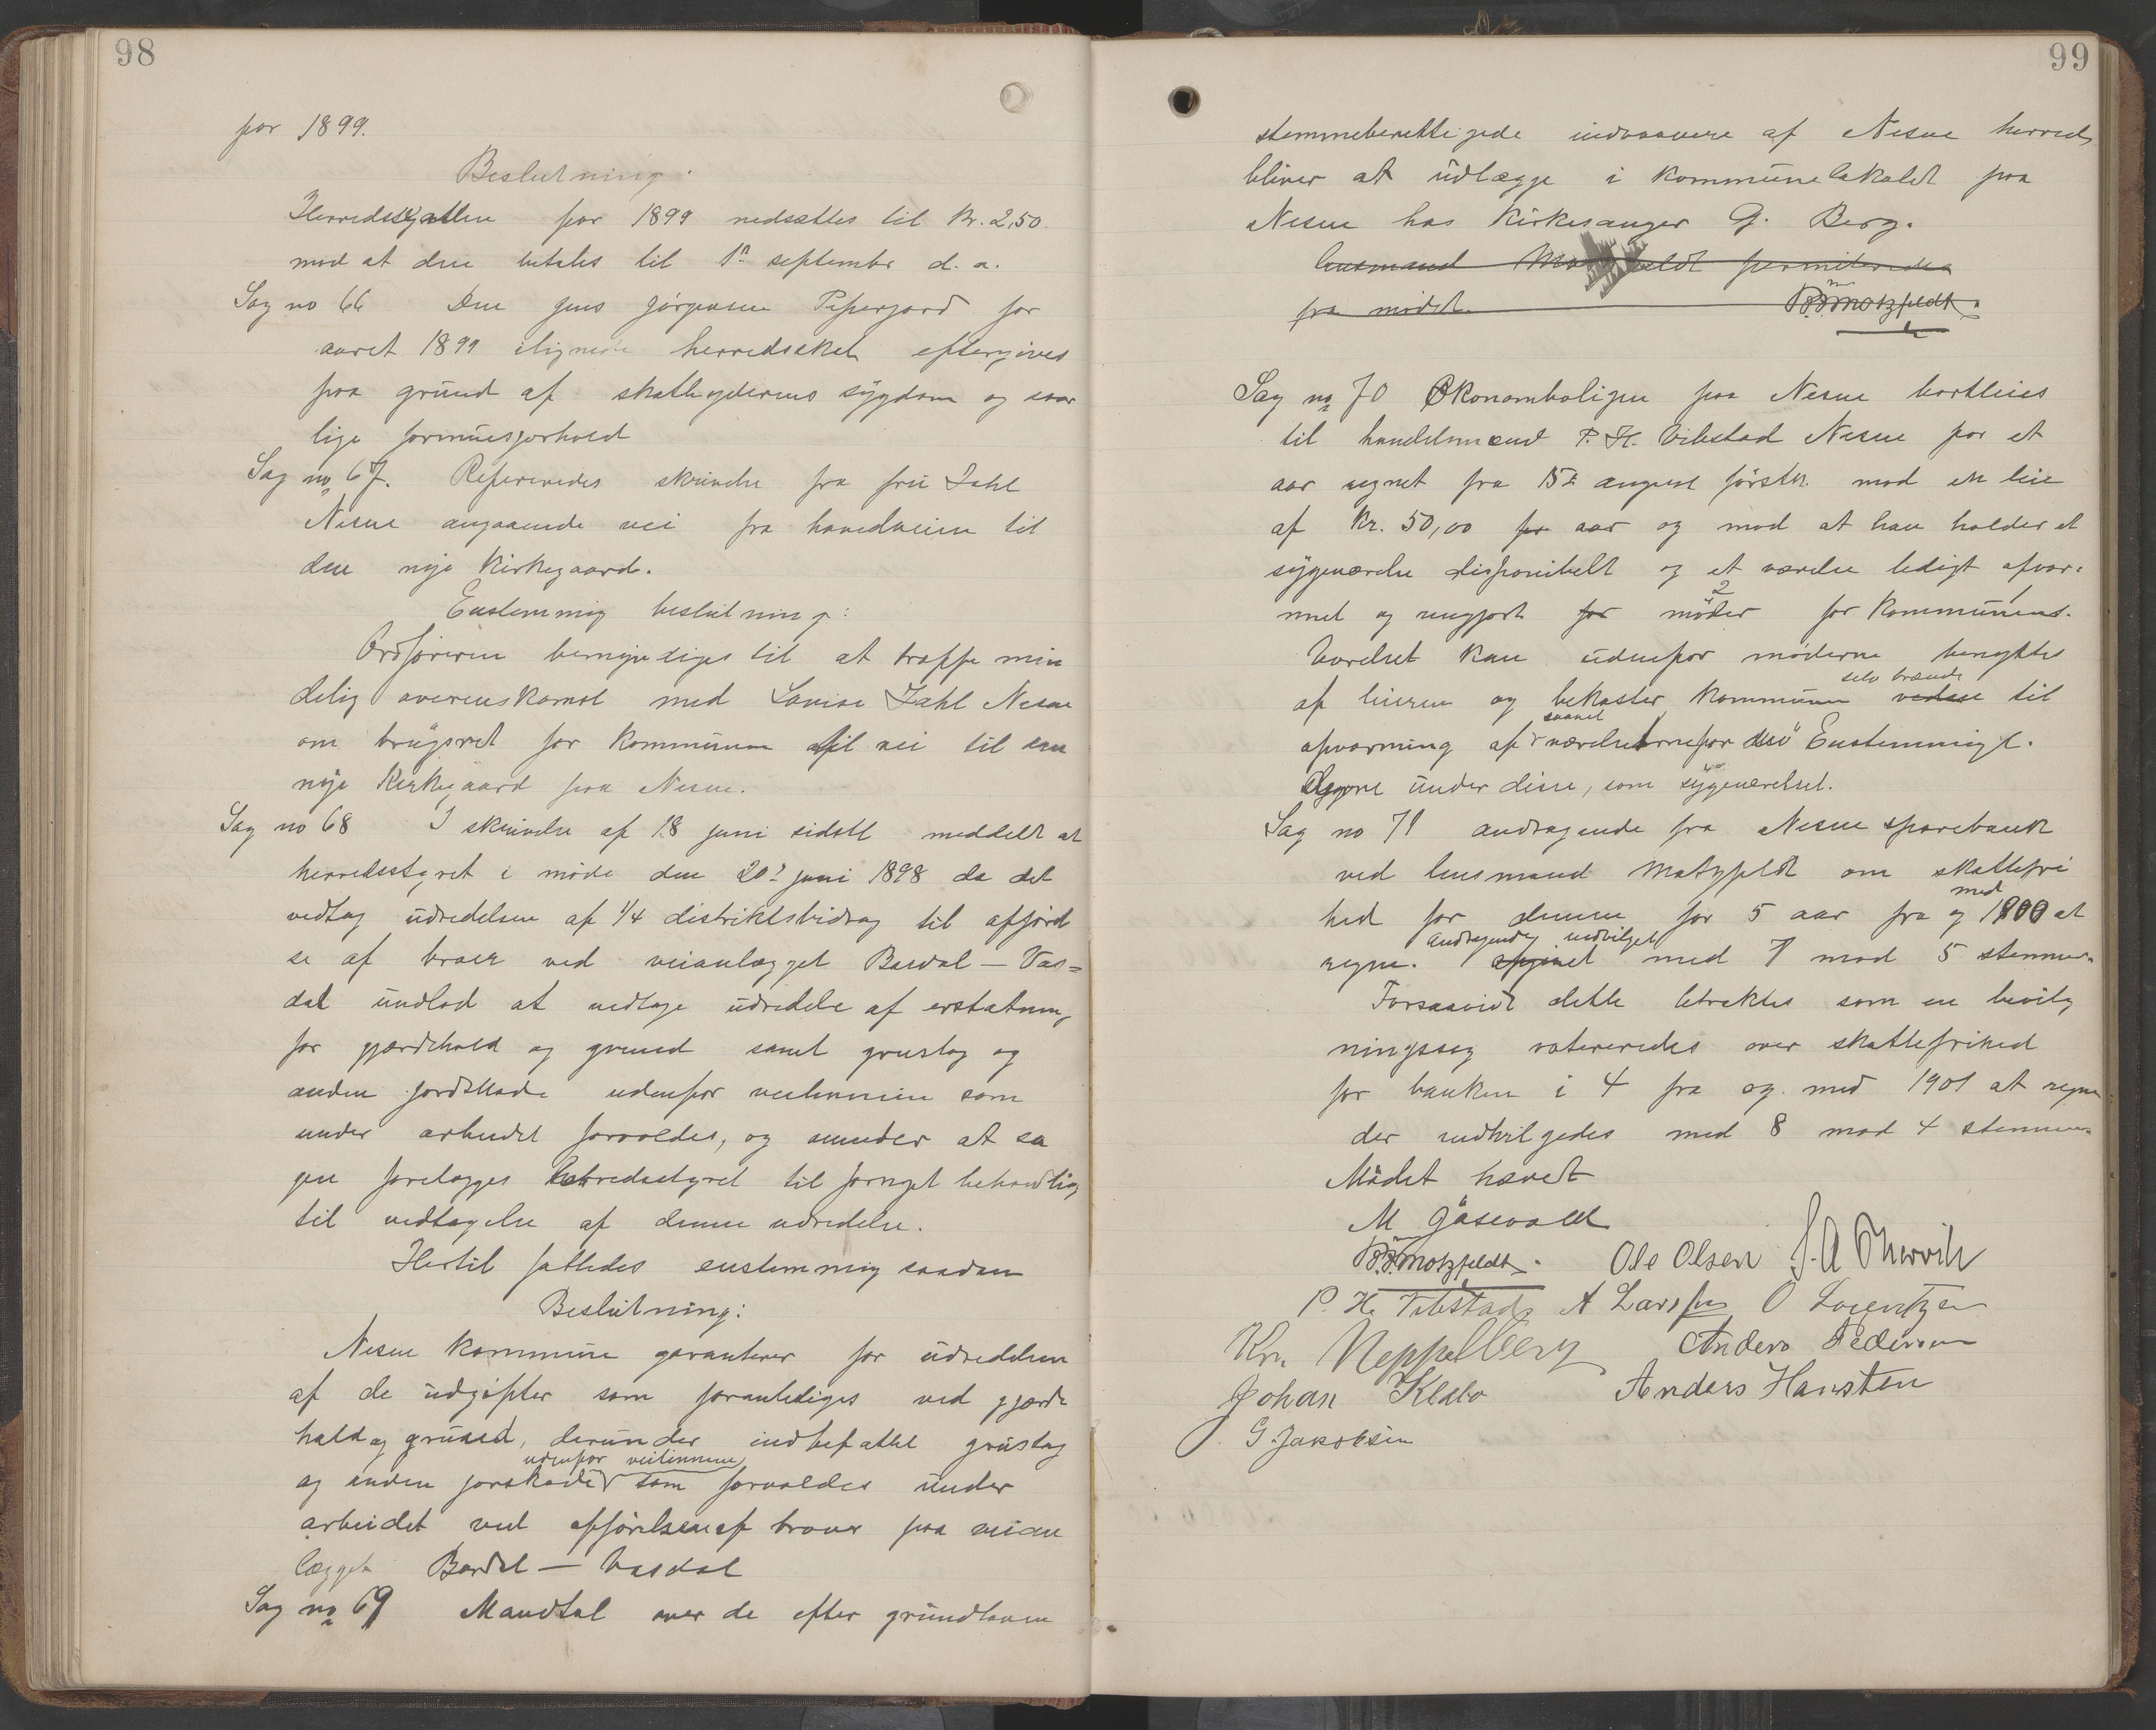 98
for 1899.
Beslutning:
Herredsskatten for 1899 nedsættes til Kr. 2,50
mod at den betales til 1ste september d. a.
Sag no 66 Den Jens Jörgensen Pesserjord for
aaret 1899 ilignede herredsskat eftergives
paa grund af skatteyderens sygdom og saar
lige formuesforhold
Sag no 67. Refereredes skrivelse fra fru Zahl
Nesne angaaende vei fra hovedveien til
den nye Kirkegaard.
Enstemmig beslutning:
Ordføreren bemyndiges til at træffe min
delig overenskomst med Lovise Zahl Nesne
om brugsret for Kommunen til vei til den
nye Kirkegaard paa Nesne.
Sag no 68 I skrivelse af 18 juni sidstl meddelt at
herredsstyret i møde den 20de juni 1898 da det
vedtog udredelsen af 1/4 distriktsbidrag til opförel
se af broer ved veianlægget Bardal — Vas=
dal undlod at vedtage udredelse af erstatning
for gjærdehold og grund samt grustag og
anden jordskade udenfor veilinnien som
under arbeidet forvoldes, og anmoder at sa
gen forelægges herredsstyret til fornyet behandling
til vedtagelse af denne udredelse.
Hertil fattedes enstemmig saadan
Beslutning:
Nesne kommune garanterer for udredelsen
af de udgifter som foranlediges ved gjærde
hold og grund, derunder indbefattet grustag
udenfor veilinnien
og anden jorskade som forvoldes under
arbeidet ved opförelsen af broer paa veian
lægget Bardal — Vasdal
Sag no 69 Mandtal over de efter grundloven
99
stemmeberettigede indvaanere af Nesne herred
bliver at udlægge i kommunelokalet paa
Nesne hos Kirkesanger G. Berg.
Lensmand Motzfeldt permiteredes
fra mödet. Motzfeldt
Sag no 70 Økonomboligen paa Nesne bortleies
til handelsmand P. H. Vibstad Nesne for et
aar regnet fra 15de august förstk. mod en leie
af Kr. 50,00 pr aar og mod at han holder et
sygeværelse disponibelt og et værelse ledigt opvar-
met og rengjort for 2 möder for Kommunens.
Værelset kan udenfor möderne benyttes
selv brænde
af leieren og bekoster kommunen vedene til
saavel
opvarming af værelset Enstemmigt.
under disse, som sygeværelset.
Sag no 71 andragende fra Nesne sparebank
ved lensmand Motzfeldt om skattefri
med
hed for denne for 5 aar fra og 1900 at
andragende indvilget
regne. afgivet med 7 mod 5 stemmer
Forsaavidt dette betraktes som en bevilg
ningssag votereredes over skattefrihed
for banken i 4 fra og med 1901 at regne
der indvilgedes med 8 mod 4 stemmer
Mödet hævet
M Gåsevold
Motzfeldt. Ole Olsen
P. H. Vibstad A Larssen O Lorentzen
Krn Neppelberg Anders Pedersen
Johan Klebo Anders Hansten
G. Jakobsen